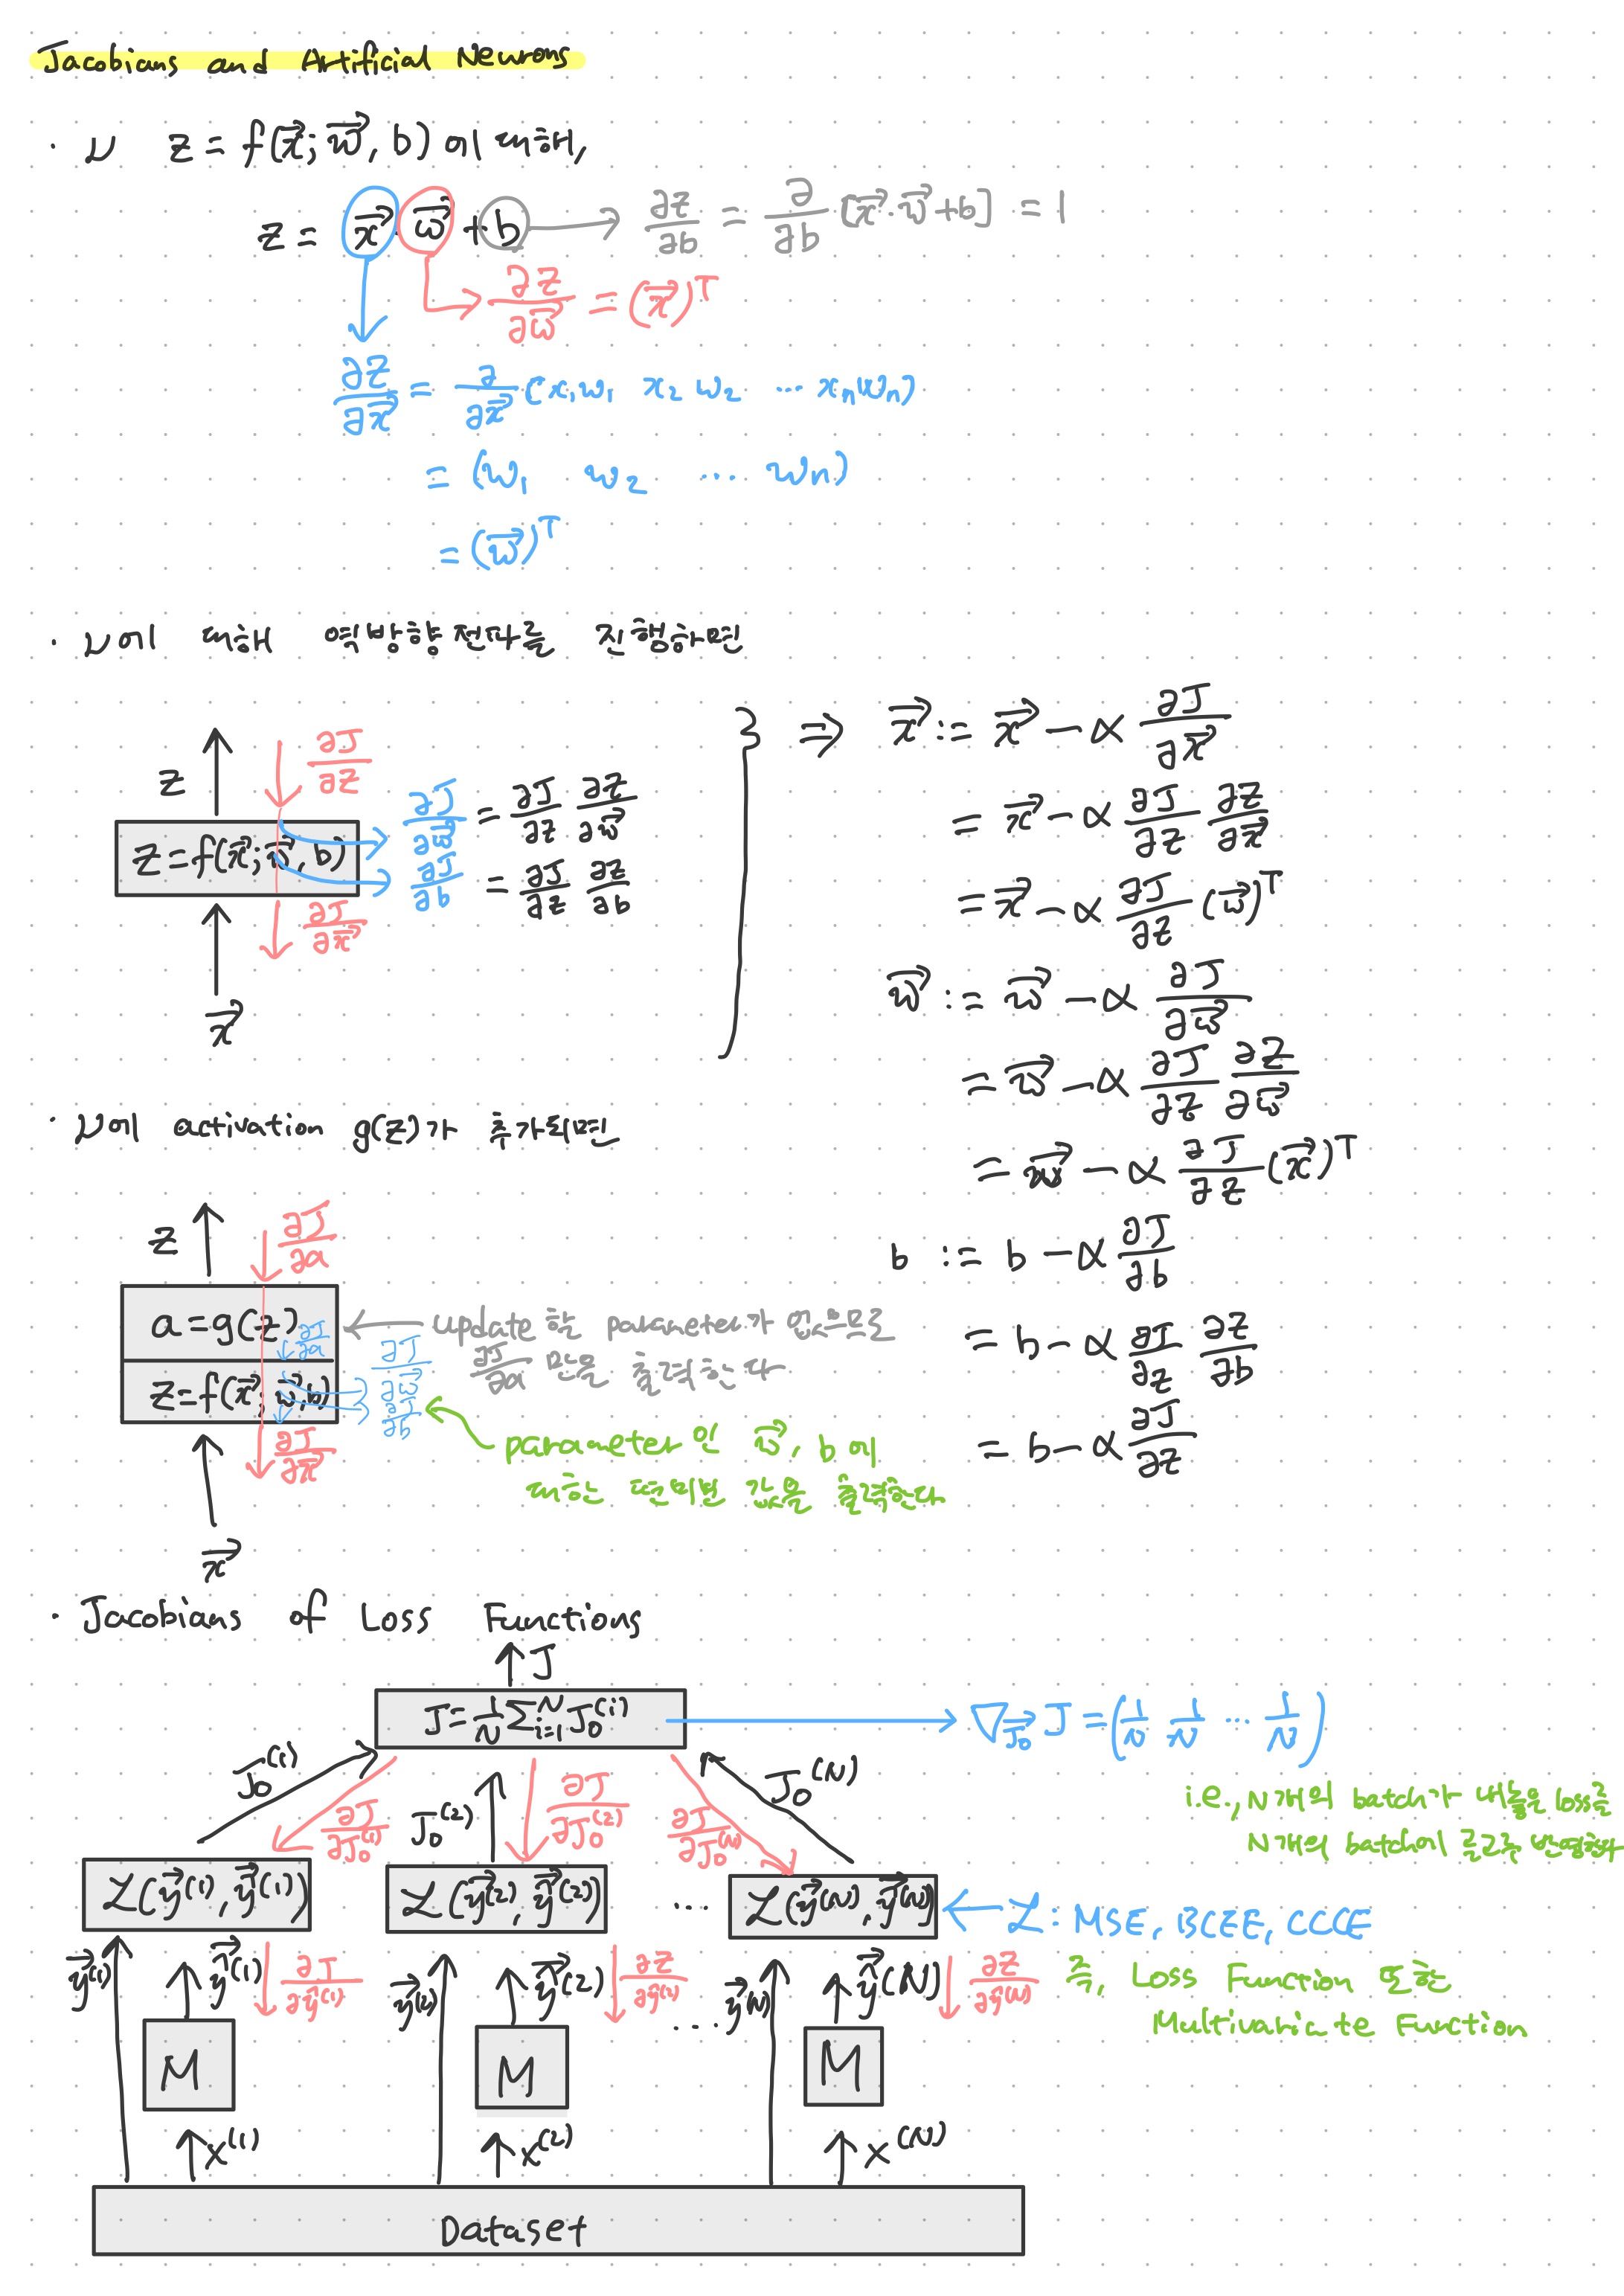 Jacobians and Artificial Neurons
· ν z = f(x⃗; w⃗, b) 에 대해,
z = x⃗ · w⃗ + b → ∂z/∂b = ∂/∂b [x⃗ · w⃗ + b] = 1
∂z/∂w⃗ = (x⃗)^T
∂z/∂x⃗ = ∂/∂x⃗ (x₁w₁ x₂w₂ ... xₙwₙ)
= (w₁ w₂ ... wₙ)
= (w⃗)^T
· ν에 대해 역방향 전파를 진행하면
z ∂J/∂z
z = f(x⃗; w⃗, b)
∂J/∂w⃗ = ∂J/∂z ∂z/∂w⃗
∂J/∂b = ∂J/∂z ∂z/∂b
∂J/∂x⃗
x⃗
⇒ x⃗ := x⃗ - α ∂J/∂x⃗
= x⃗ - α ∂J/∂z ∂z/∂x⃗
= x⃗ - α ∂J/∂z (w⃗)^T
w⃗ := w⃗ - α ∂J/∂w⃗
= w⃗ - α ∂J/∂z ∂z/∂w⃗
= w⃗ - α ∂J/∂z (x⃗)^T
b := b - α ∂J/∂b
= b - α ∂J/∂z ∂z/∂b
= b - α ∂J/∂z
· ν에 activation g(z)가 추가되면
z ∂J/∂a
a = g(z) ∂J/∂a
← update 할 parameter가 없으므로
∂J/∂a 만을 출력한다
z = f(x⃗; w⃗, b) ∂J/∂w⃗ ∂J/∂b
parameter인 w⃗, b에
대한 편미분 값을 출력한다
∂J/∂x⃗
x⃗
· Jacobians of Loss Functions
↑ J
J = 1/N Σ_{i=1}^{N} J₀^(i) → ∇_{J⃗₀} J = (1/N 1/N ... 1/N)
i.e., N개의 batch가 내놓은 loss를
N개의 batch에 골고루 반영한다
J₀^(1) ∂J/∂J₀^(1) J₀^(2) ∂J/∂J₀^(2) ∂J/∂J₀^(N) J₀^(N)
ℒ(y⃗^(1), ŷ⃗^(1)) ℒ(y⃗^(2), ŷ⃗^(2)) ... ℒ(y⃗^(N), ŷ⃗^(N)) ← ℒ : MSE, BCEE, CCCE
y⃗^(1) ŷ⃗^(1) ∂J/∂ŷ^(1) y⃗^(2) ŷ⃗^(2) ∂ℒ/∂ŷ^(2) ... y⃗^(N) ŷ⃗^(N) ∂ℒ/∂ŷ^(N)
즉, Loss Function 또한
Multivariate Function
M M M
x^(1) x^(2) x^(N)
Dataset